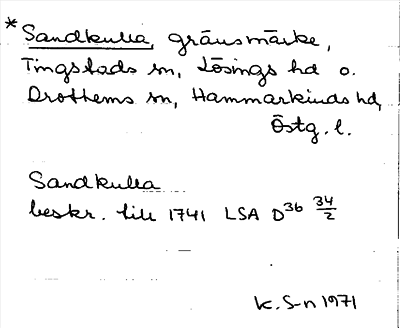 * Sandkulla, gränsmärke,
Tingstads sn, Lösings hd o.
Drothems sn, Hammarkinds hd,
Östg. l.
Sandkulla
beskr. till 1741 LSA D36 34/2
K. S-n 1971